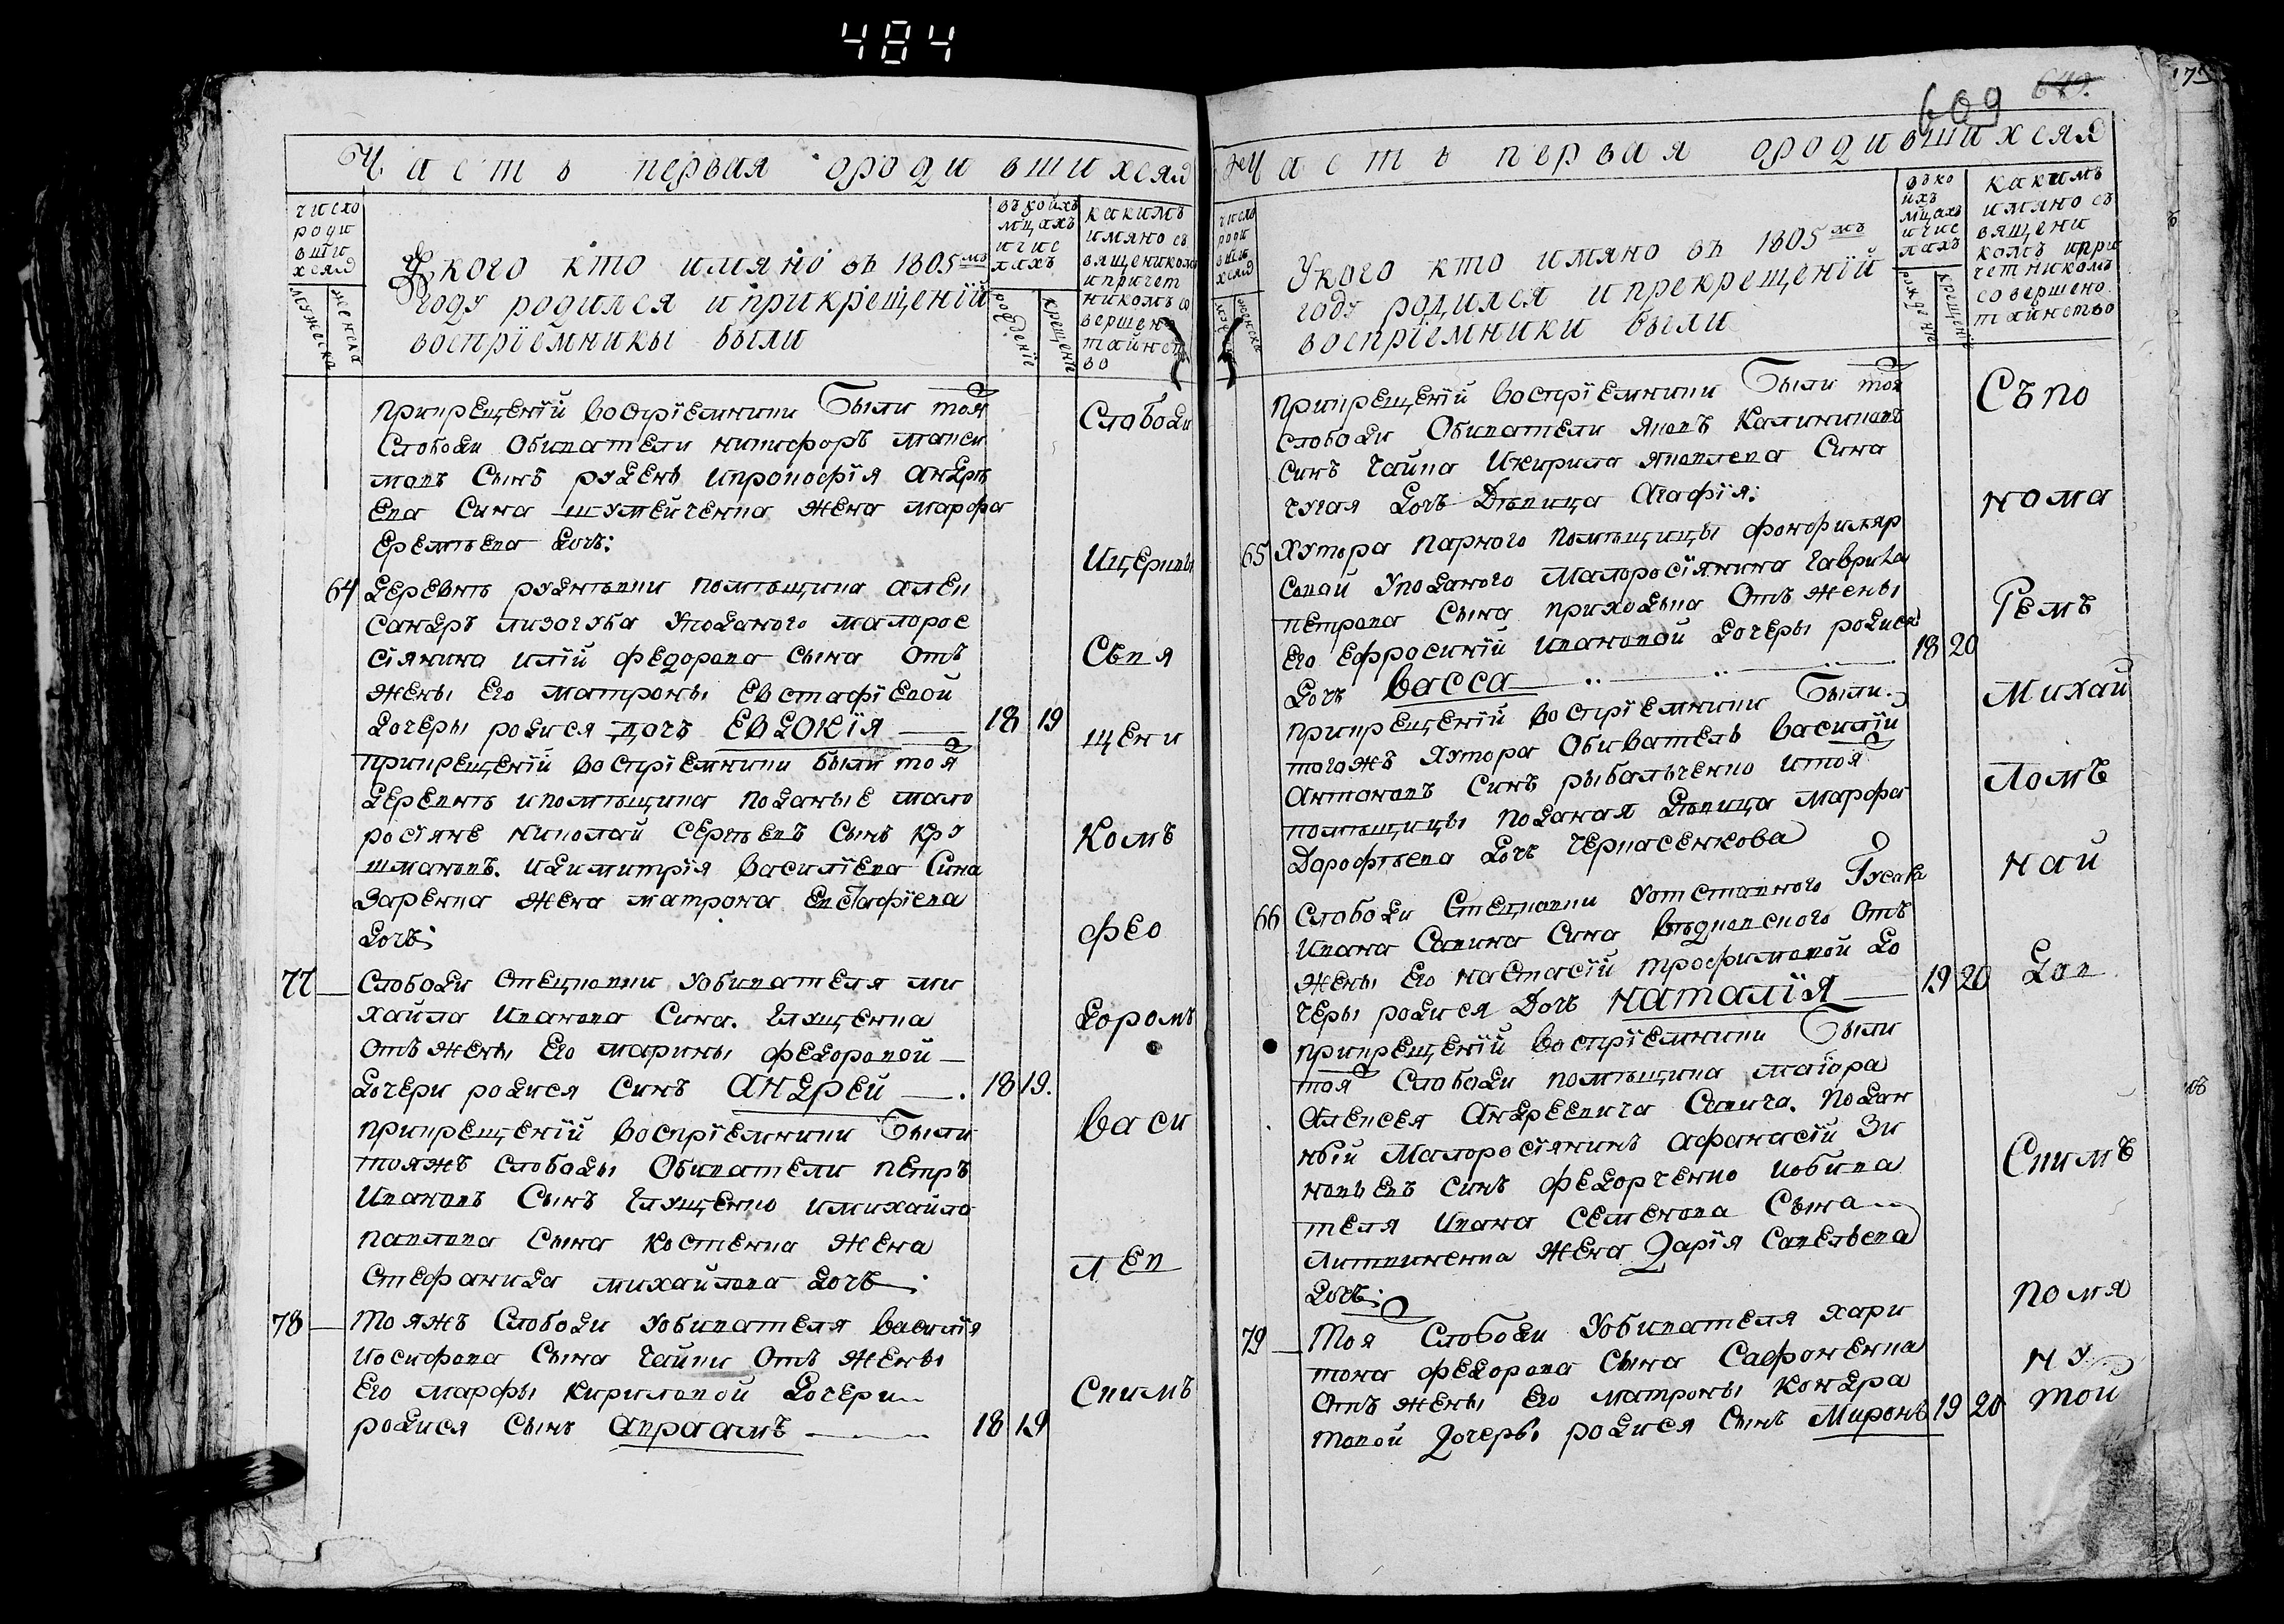 484
Часть первая ородившихсяя
число родившихсяя
мужеска
женска
Укого кто имяно въ 1805мъ
году родился иприкрещенїй
воспрїемникы были
въкоихъ мцахъ ичислахъ
рождение
крещение
какимъ имяно священиком ипричетникомъ совершено таинство
прикрещенїй воспрїемники были тоя
слободи обиватели никифоръ макси
мовъ сынъ руденъ ипрокофїя андрѣ
ева сина шумейченка жена марфа
еремѣева дочъ:
64 деревнѣ руднѣвки помѣщика алек
сандръ лизогуба уподаного малорос
сіянина илїй федорова сына отъ
жены его матроны Евстафїевой
дочеры родися дочъ Евдокїя 18 19
прикрещенїй воспрїемники были тоя
деревнѣ ипомѣщика поданые мало
росіяне николай сергѣевъ сынъ кру
шмановъ. идимитрїя василїева сина
Заренка жена матрона Евстафїева
дочъ:
77 слободи стецковки уобивателя ми
хайла иванова сина. глущенка
отъ жены его марины федоровой
дочери родися синъ Андрей 18 19.
прикрещенїй воспрїемники были
тояжъ слободы обиватели петръ
ивановъ сынъ глущенко имихайла
павлова сына костенка жена
стефанида михайлова дочъ:
78 тояжъ слободи уобивателя василїя
иосифова сына чайки отъ жены
его марфы кириловой дочери
родися сынъ Авраамъ 18 19
слободи
ицеркви
свя
щени
комъ
фео
доромъ
васи
лев
скимъ
609
649.
Часть первая ородившихсяя
число родившихсяя
женска
Укого кто имяно въ 1805мъ
году родился ипрекрещенїй
воспрїемники были
въкоихъ мцахъ ичислахъ
рождение
крещение
какимъ имяно съ вященикомъ ипричетникомъ совершено таинство
прикрещенїй воспрїемники были тоя
слободи обиватели яковъ калиниковъ
синъ чайка икирила яковлева сина
чугая дочъ Дѣвица агафїя:
65 Хутора парного помѣщицы фонфиляр
совой уподаного малоросіянина гаврила
петрова сына приходька отъ жены
его ефросинїй ивановой дочеры родися
дочъ Васса 18 20
прикрещенїй воспрїемники были
тогожъ хутора обиватель василїй
антоновъ синъ рыбальченко итоя
помѣщицы поданая дѣвица марфа
Дарофѣева дочъ чернасенкова
66 Слободи стецковки уотставного гусара
ивана савина сина отъ
жены его настасїй трофимовой до
черы родися дочъ Наталїя 19 20
прикрещенїй воспрїемники были
тоя слободи помѣщика маїора
алексея андреевича савича. подан
ный малоросіянинъ афанасїй зи
новьевъ синъ федорченко иобива
теля ивана семенова сына
литвиненка жена Дарїя савельева
дочъ:
79 тоя слободи уобивателя хари
тона федорова сына сафоненка
отъ жены его матроны кондра
товой дочеры родися сынъ Миронъ 19 20
съпо
нома
ремъ
михай
ломъ
най
дов
скимъ
помя
ну
той